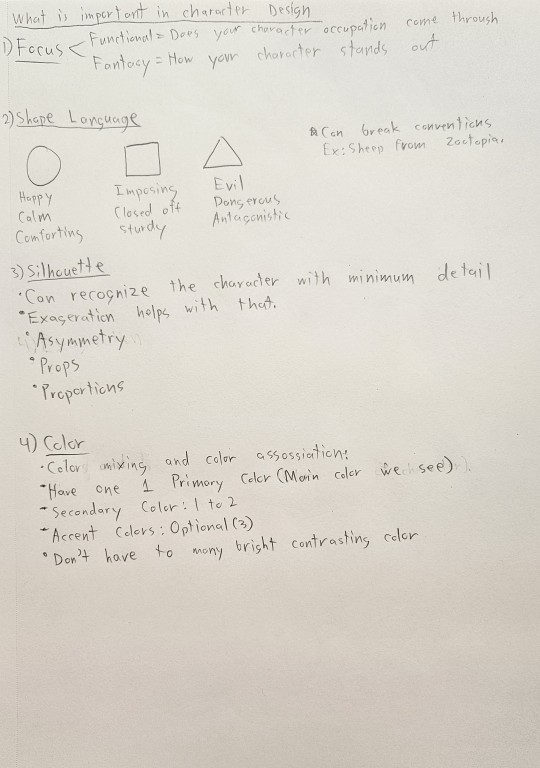 What is important in character Design
1) Focus < Functional = Does your character occupation come through
Fantasy = How your character stands out
2) Shape Language
* Can break conventions
Ex: Sheep from Zootopia.
Happy
Calm
Comforting
Imposing
Closed off
sturdy
Evil
Dangerous
Antagonistic
3) Silhouette
• Can recognize the character with minimum detail
• Exageration helps with that.
• Asymmetry
• Props
• Proportions
4) Color
• Color mixing and color assossiation:
- Have one 1 Primary Color (Main color we see)
- Secondary Color: 1 to 2
- Accent Colors: Optional (3)
• Don't have to many bright contrasting color